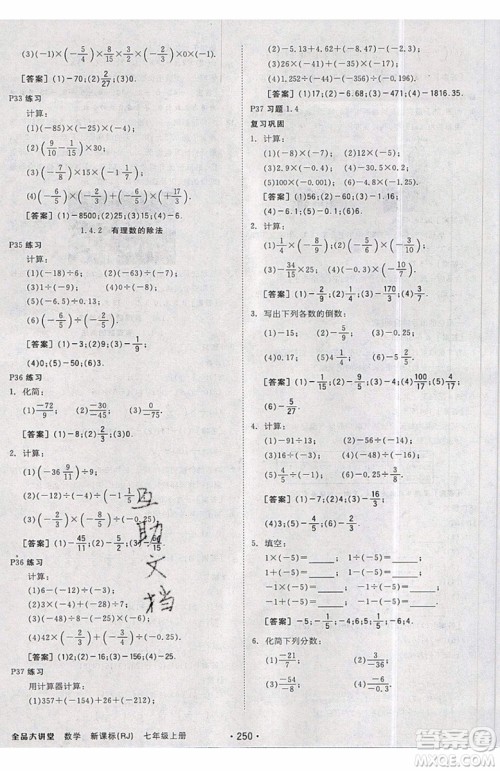 (3)(-1)×(-5/4)×8/15×3/2×(-2/3)×0×(-1).
[答案](1)-70;(2)2/27;(3)0.
P33 练习
计算:
(1)(-85)×(-25)×(-4);
(2)(9/10-1/15)×30;
(3)(-7/8)×15×(-1 1/7);
(4)(-6/5)×(-2/3)+(-6/5)×(+17/3).
[答案](1)-8500;(2)25;(3)15;(4)-6.
1.4.2 有理数的除法
P35 练习
计算:
(1)(-18)÷6;
(2)(-63)÷(-7);
(3)1÷(-9);
(4)0÷(-8);
(5)(-6.5)÷0.13;
(6)(-6/5)÷(-2/5).
[答案](1)-3;(2)9;(3)-1/9;
(4)0;(5)-50;(6)3.
P36 练习
1. 化简:
(1)-72/9;
(2)-30/-45;
(3)0/-75.
[答案](1)-8;(2)2/3;(3)0.
2. 计算:
(1)(-36 9/11)÷9;
(2)(-12)÷(-4)÷(-1 1/5);
(3)(-2/3)×(-8/5)÷(-0.25).
[答案](1)-45/11;(2)-5/2;(3)-64/15
P36 练习
计算:
(1)6-(-12)÷(-3);
(2)3×(-4)+(-28)÷7;
(3)(-48)÷8-(-25)×(-6);
(4)42×(-2/3)+(-3/4)÷(-0.25).
[答案](1)2;(2)-16;(3)-156;(4)-25.
P37 练习
用计算器计算:
(1)357+(-154)+26+(-212);
(2)-5.13+4.62+(-8.47)-(-2.3);
(3)26×(-41)+(-35)×(-17);
(4)1.252÷(-44)-(-356)÷(-0.196).
[答案](1)17;(2)-6.68;(3)-471;(4)-1816.35.
P37 习题 1.4
复习巩固
1. 计算:
(1)(-8)×(-7);
(2)12×(-5);
(3)2.9×(-0.4);
(4)-30.5×0.2;
(5)100×(-0.001);
(6)-4.8×(-1.25).
[答案](1)56;(2)-60;(3)-1.16;
(4)-6.1;(5)-0.1;(6)6.
2. 计算:
(1)1/4×(-8/9);
(2)(-5/6)×(-3/10);
(3)-34/15×25;
(4)(-0.3)×(-10/7).
[答案](1)-2/9;(2)1/4;(3)-170/3;(4)3/7.
3. 写出下列各数的倒数:
(1)-15;
(2)-5/9;
(3)-0.25;
(4)0.17;
(5)4 1/4;
(6)-5 2/5.
[答案](1)-1/15;(2)-9/5;(3)-4;(4)100/17;
(5)4/17;(6)-5/27.
4. 计算:
(1)-91÷13;
(2)-56÷(-14);
(3)16÷(-3);
(4)(-48)÷(-16);
(5)4/5÷(-1);
(6)-0.25÷3/8.
[答案](1)-7;(2)4;(3)-16/3;(4)3;
(5)-4/5;(6)-2/3.
5. 填空:
1×(-5)=____; 1÷(-5)=____;
1+(-5)=____; 1-(-5)=____;
-1÷(-5)=____; -1×(-5)=____.
[答案]-5;-1/5;-4;6;1/5;5.
6. 化简下列分数:
(1)-21/7;
(2)3/-36;
(3)-54/-8;
互助文档
全品大讲堂 数学 新课标(RJ) 七年级上册
·250·